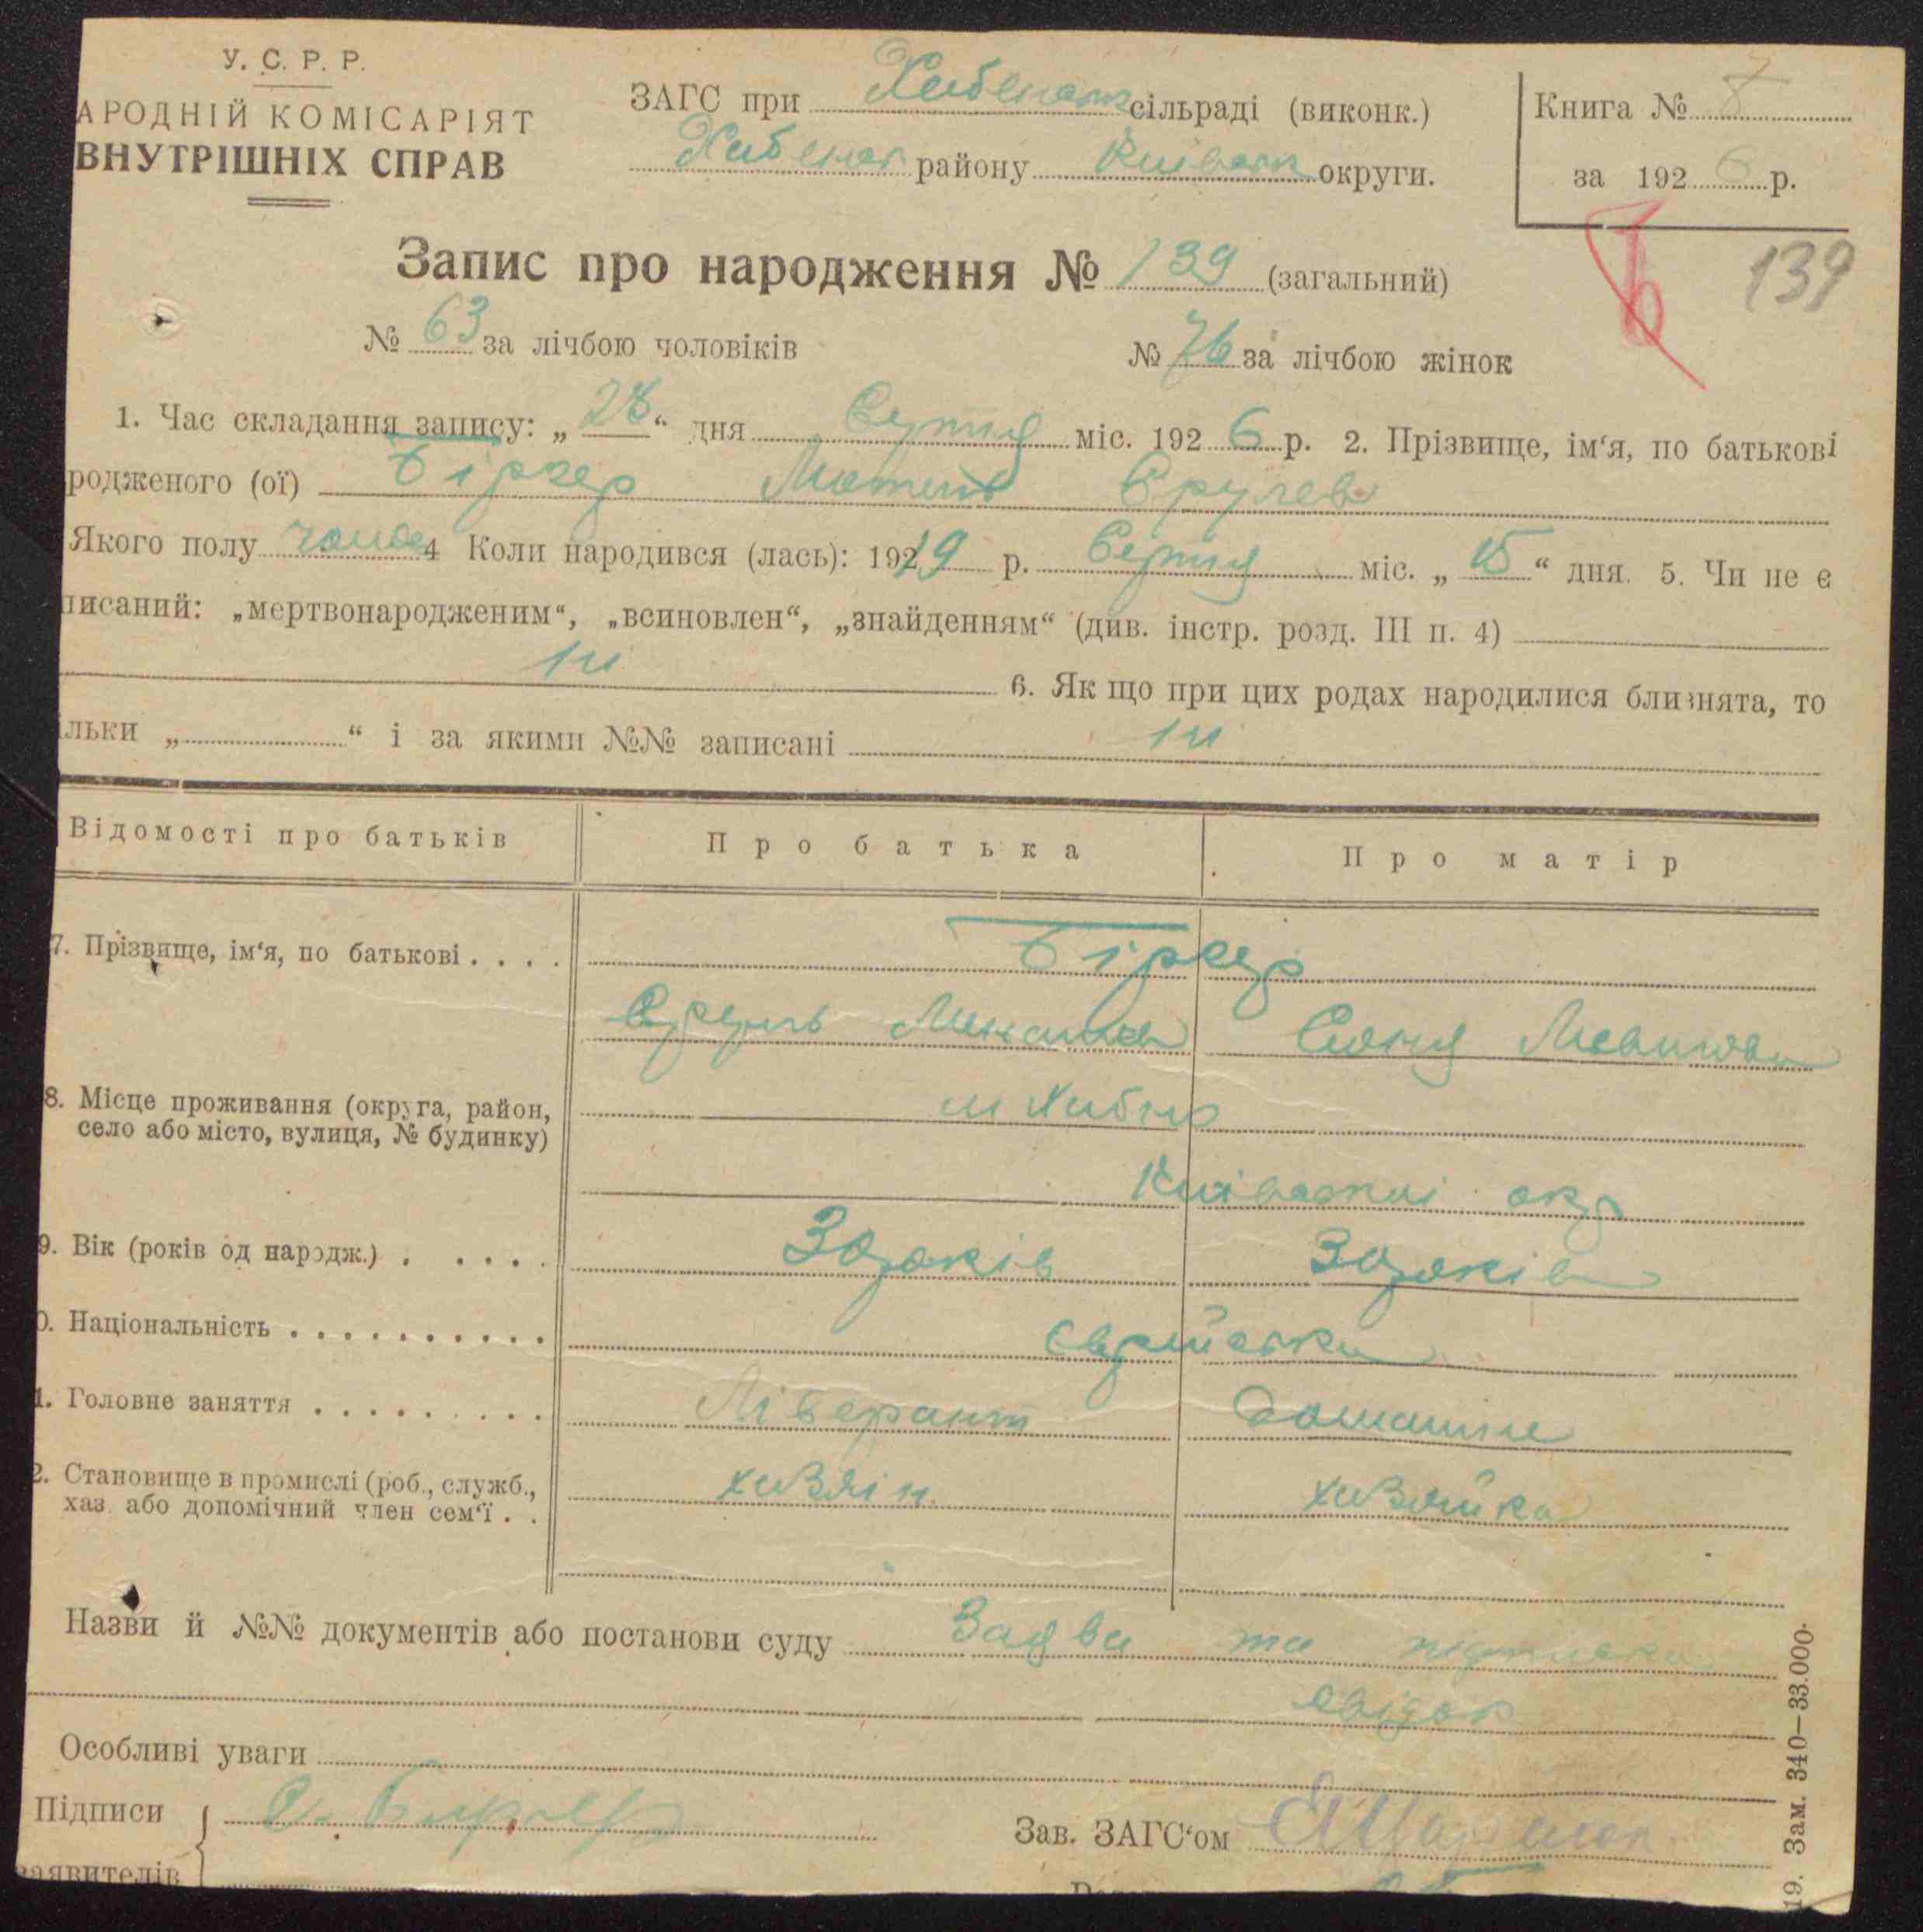 У. С. Р. Р.
АРОДНІЙ КОМІСАРІЯТ
ВНУТРІШНІХ СПРАВ
ЗАГС при Хабенськ сільраді (виконк.)
Хабенськ району Київськ округи.
Книга №
за 1926 р.
Запис про народження № 139 (загальний)
139
№ 63 за лічбою чоловіків № 76 за лічбою жінок
1. Час складання запису: „28“ дня Серпня міс. 1926 р. 2. Прізвище, ім‘я, по батькові
родженого (ої) Біргер Срулев
Якого полу чолов 4 Коли народився (лась): 19219 р. Серпня міс. „15“ дня. 5. Чи не є
писаний: „мертвонародженим“, „всиновлен“, „знайденням“ (див. інстр. розд. III п. 4)
ні 6. Як що при цих родах народилися близнята, то
ільки „ “ і за якими №№ записані ні
Відомості про батьків Про батька Про матір
7. Прізвище, ім‘я, по батькові . . . . Біргер
Сруль Соня
8. Місце проживання (округа, район,
село або місто, вулиця, № будинку)
м Хабно
Київської окр
9. Вік (років од народж.) . . . . . 30років 30років
0. Національність . . . . . . . . . . Єврейська
1. Головне заняття . . . . . . . . . Ліверант Домашнє
2. Становище в промислі (роб., служб.,
хаз. або допомічний член сем‘ї . . хазяін хазяйка
Назви й №№ документів або постанови суду Заява та підписка
свідок
Особливі уваги
Підписи
заявителів
С. Биргер
Зав. ЗАГС‘ом
19. Зам. 340—33.000.